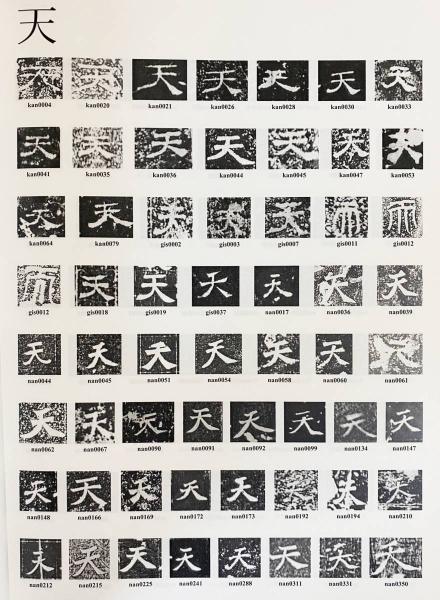 天
天 天 天 天 天 天 天
kan0004 kan0020 kan0021 kan0026 kan0028 kan0030 kan0033
天 天 天 天 天 天 天
kan0041 kan0035 kan0036 kan0044 kan0045 kan0047 kan0053
天 天 天 天 天 天 天
kan0064 kan0079 gis0002 gis0003 gis0007 gis0011 gis0012
天 天 天 天 天 天 天
gis0012 gis0018 gis0019 gis0037 nan0017 nan0036 nan0039
天 天 天 天 天 天 天
nan0044 nan0045 nan0051 nan0054 nan0058 nan0060 nan0061
天 天 天 天 天 天 天 天
nan0062 nan0067 nan0090 nan0091 nan0092 nan0099 nan0134 nan0147
天 天 天 天 天 天 天 天
nan0148 nan0166 nan0169 nan0172 nan0173 nan0192 nan0194 nan0210
天 天 天 天 天 天 天 天
nan0212 nan0215 nan0225 nan0241 nan0288 nan0311 nan0331 nan0350